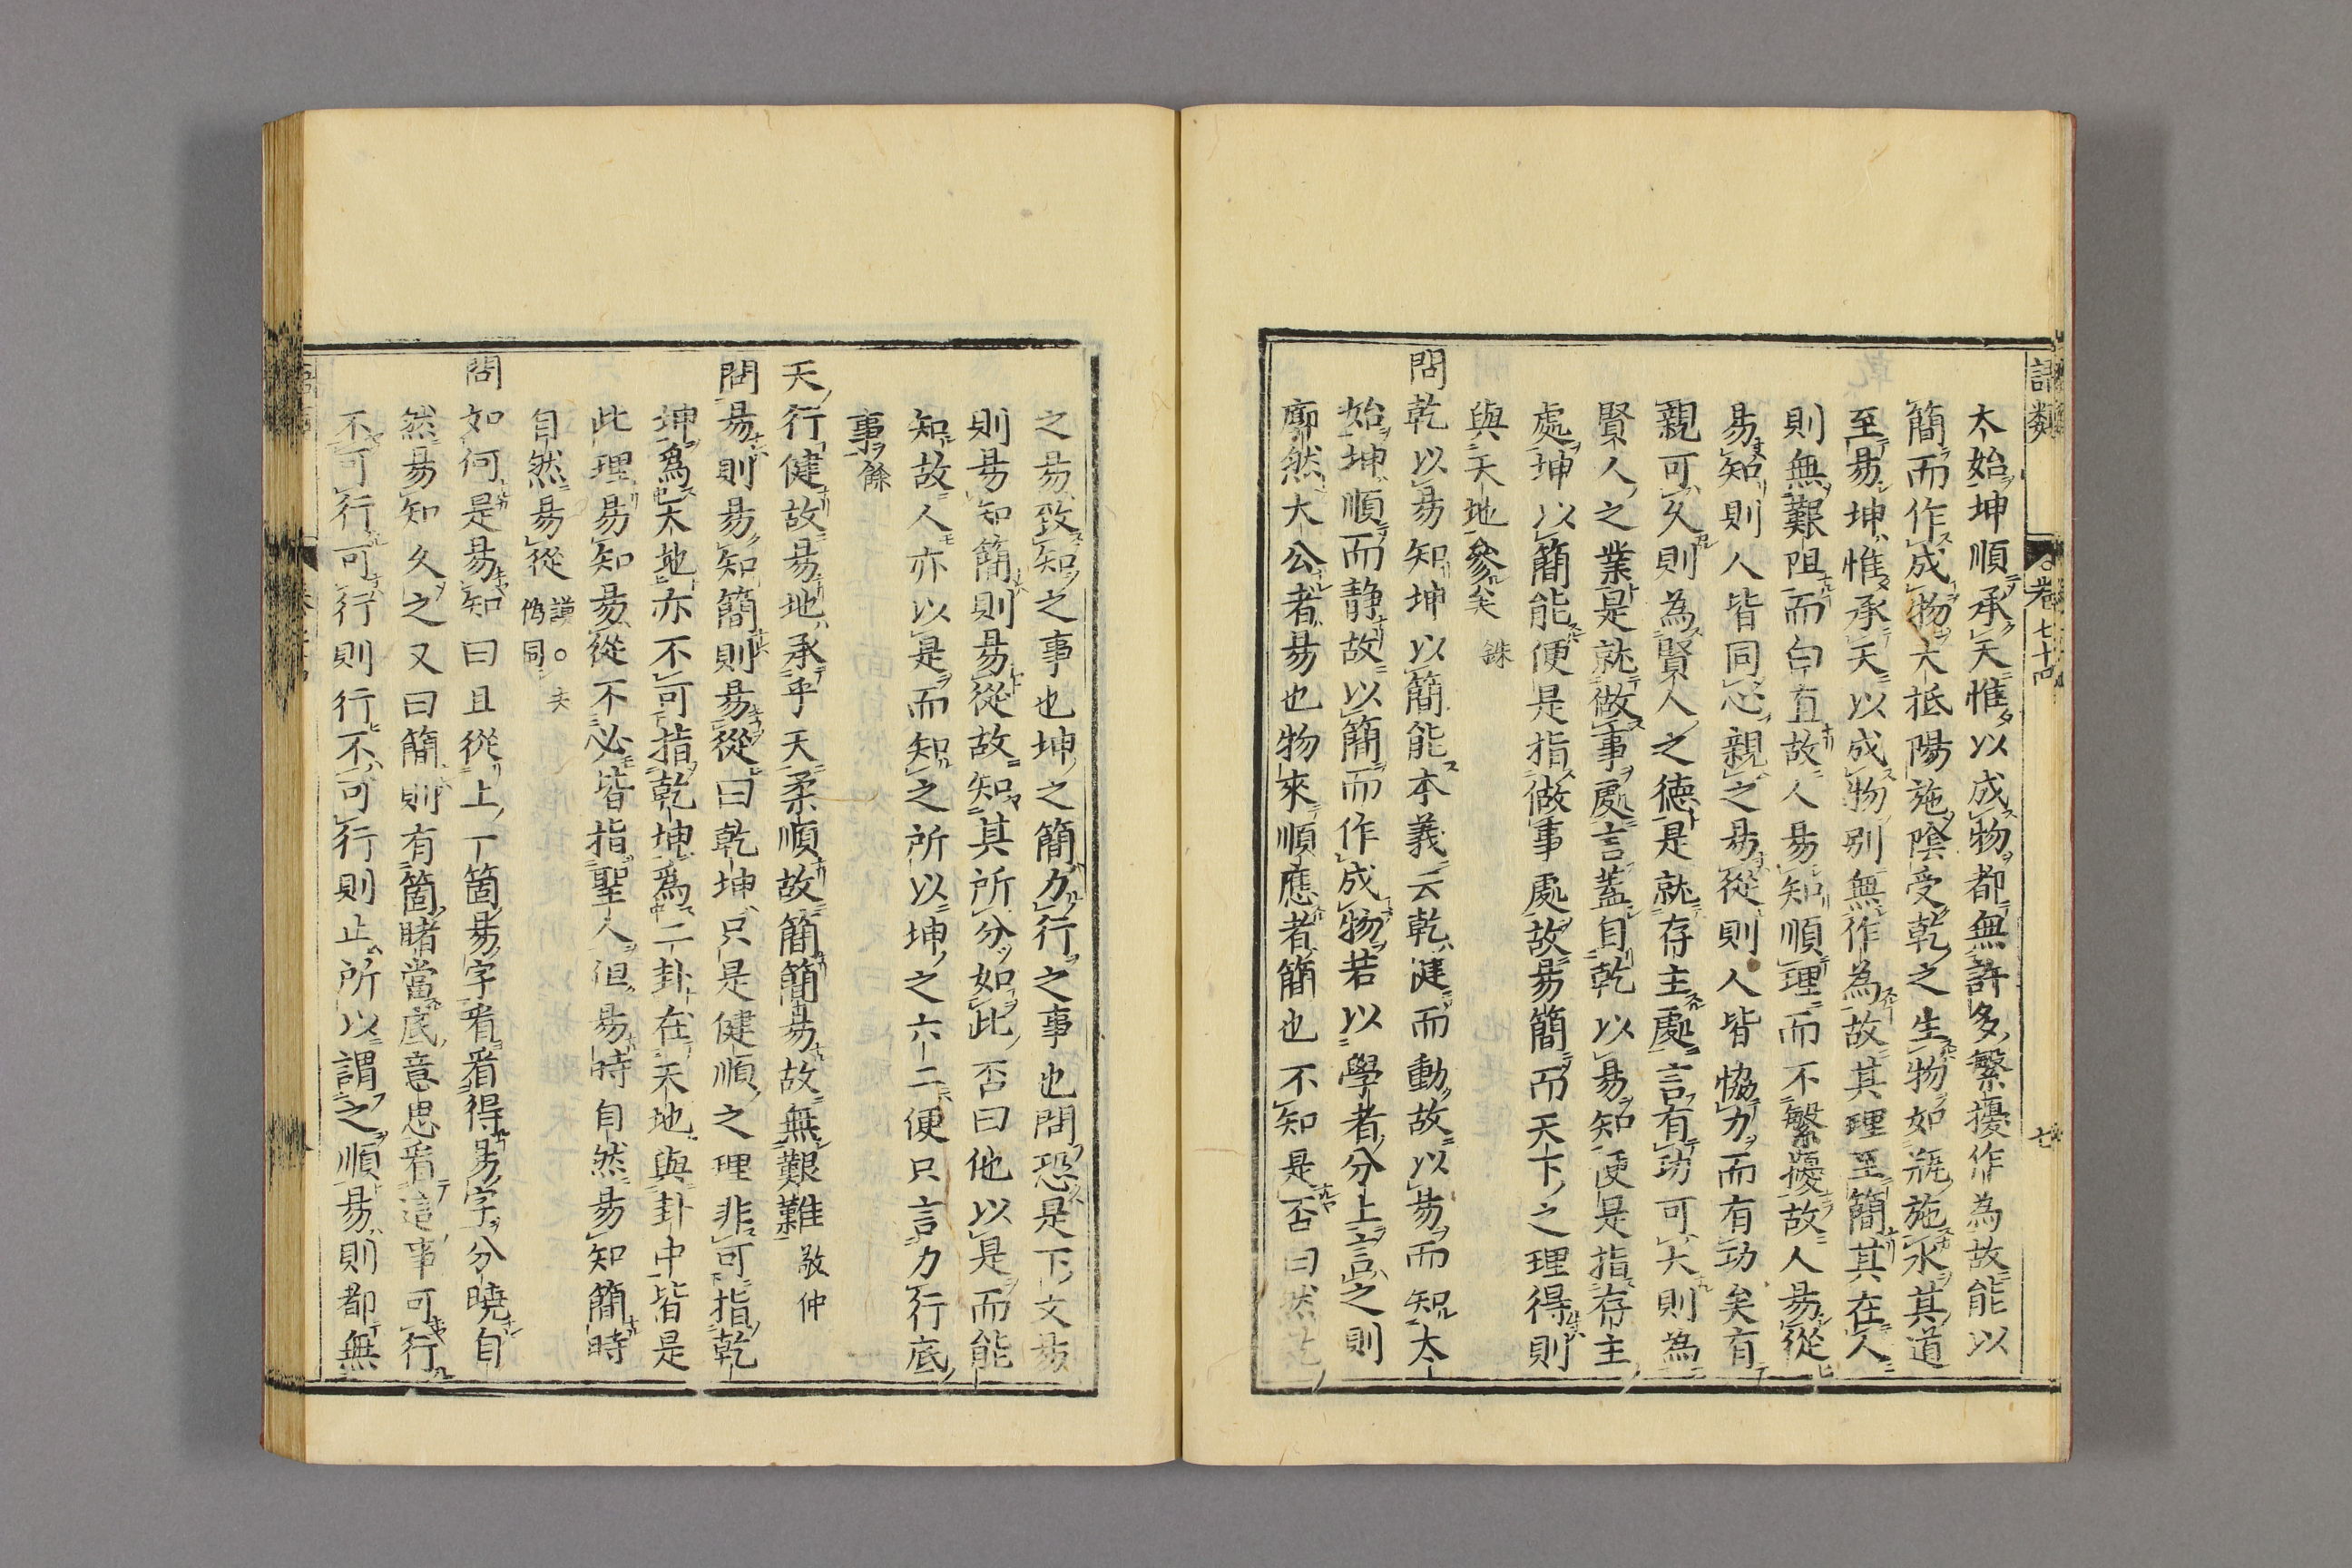 語類
卷七十四
七
太始坤順承天惟以成物都無許多繁擾作為故能以
簡而作成物大抵陽施陰受乾之生物如瓶施水其道
至易坤惟承天以成物別無作為故其理至簡其在人
則無艱阻而白直故人易知順理而不繁擾故人易從
易知則人皆同心親之易從則人皆恊力而有功矣有
親可久則為賢人之德是就存主處言有功可大則為
賢人之業是就做事處言蓋自乾以易知便是指存主
處坤以簡能便是指做事處故易簡而天下之理得則
與天地參矣 銖
問乾以易知坤以簡能本義云乾健而動故以易而知太
始坤順而静故以簡而作成物若以學者分上言之則
廓然大公者易也物來順應者簡也不知是否曰然乾
之易致知之事也坤之簡力行之事也問恐是下文易
則易知簡則易從故知其所分如此否曰他以是而能
知故人亦以是而知之所以坤之六二便只言力行底
事 餘
天行健故易地承乎天柔順故簡簡易故無艱難 敬仲
問易則易知簡則易從曰乾坤只是健順之理非可指乾
坤爲天地亦不可指乾坤爲二卦在天地與卦中皆是
此理易知易從不必皆指聖人但易時自然易知簡時
自然易從 謨○去偽同
問如何是易知曰且從上一箇易字看看得易字分曉自
然易知久之又曰簡則有箇睹當底意思看這事可行
不可行可行則行不可行則止所以謂之順易則都無